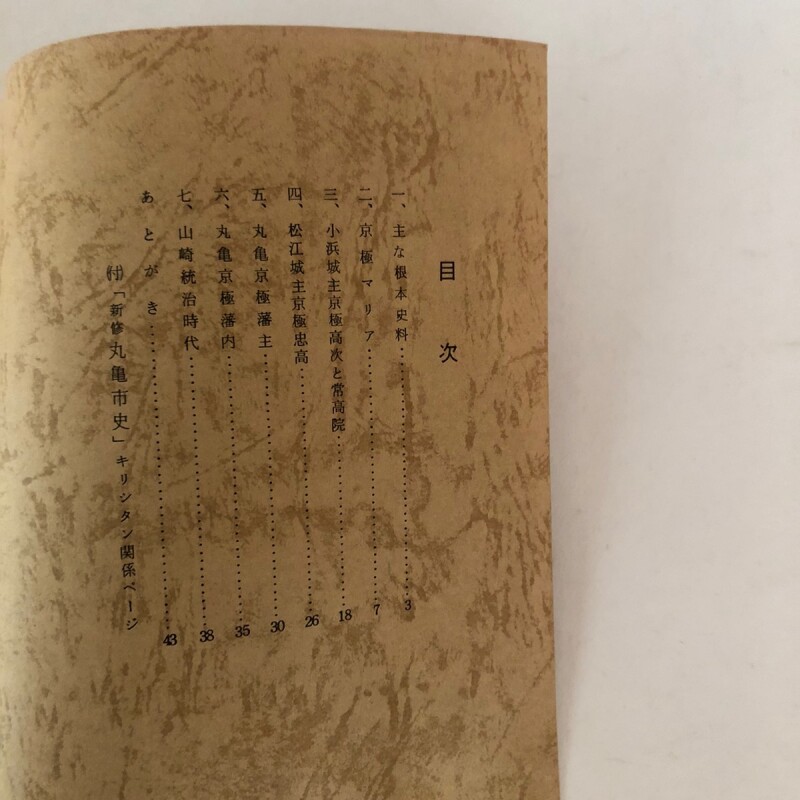 目次
一、主な根本史料……………………3
二、京極マリア……………………7
三、小浜城主京極高次と常高院……………………18
四、松江城主京極忠高……………………26
五、丸亀京極藩主……………………30
六、丸亀京極藩内……………………35
七、山崎統治時代……………………38
あとがき……………………43
㈹「新修丸亀市史」キリシタン関係ページ